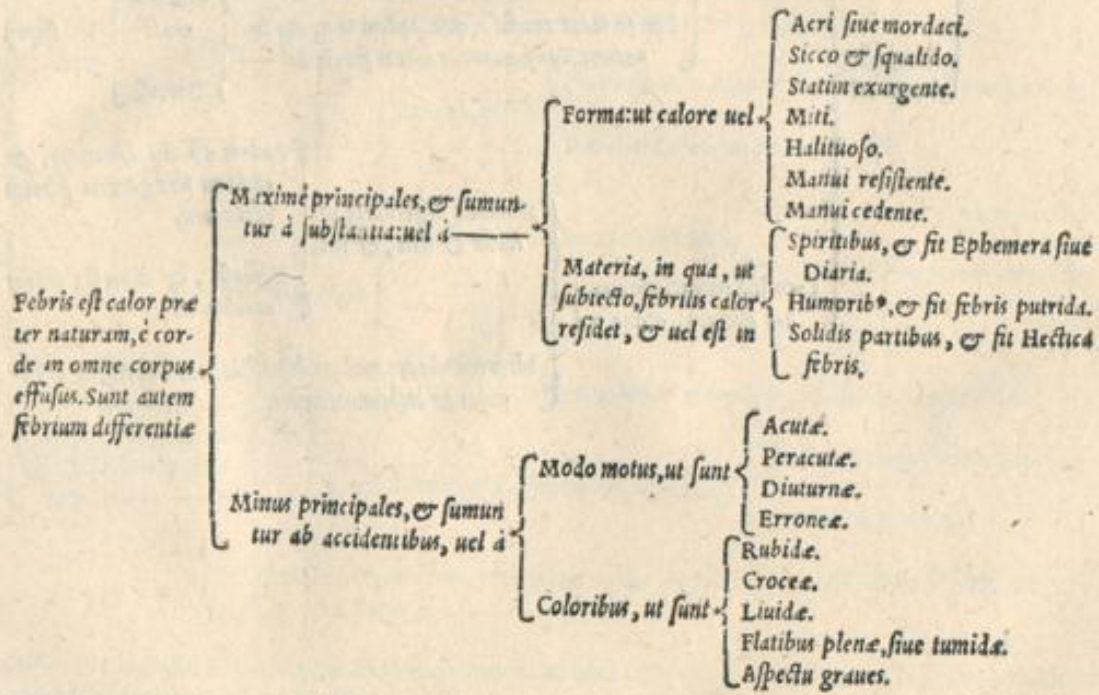 Febris est calor præ
ter naturam, é cor-
de in omne corpus
effusus. Sunt autem
febrium differentiæ
Maximè principales, & sumun-
tur á substantia: uel á
Forma: ut calore uel
Acri siue mordaci.
Sicco & squalido.
Statim exurgente.
Miti.
Halituoso.
Manui resistente.
Manui cedente.
Materia, in qua, ut
subiecto, febrilis calor
residet, & uel est in
Spiritibus, & fit Ephemera siue
Diaria.
Humorib9, & fit febris putrida.
Solidis partibus, & fit Hectica
febris.
Minus principales, & sumun
tur ab accidentibus, uel á
Modo motus, ut sunt
Acutæ.
Peracutæ.
Diuturnæ.
Erroneæ.
Coloribus, ut sunt
Rubidæ.
Croceæ.
Liuidæ.
Flatibus plenæ, siue tumidæ.
Aspectu graues.